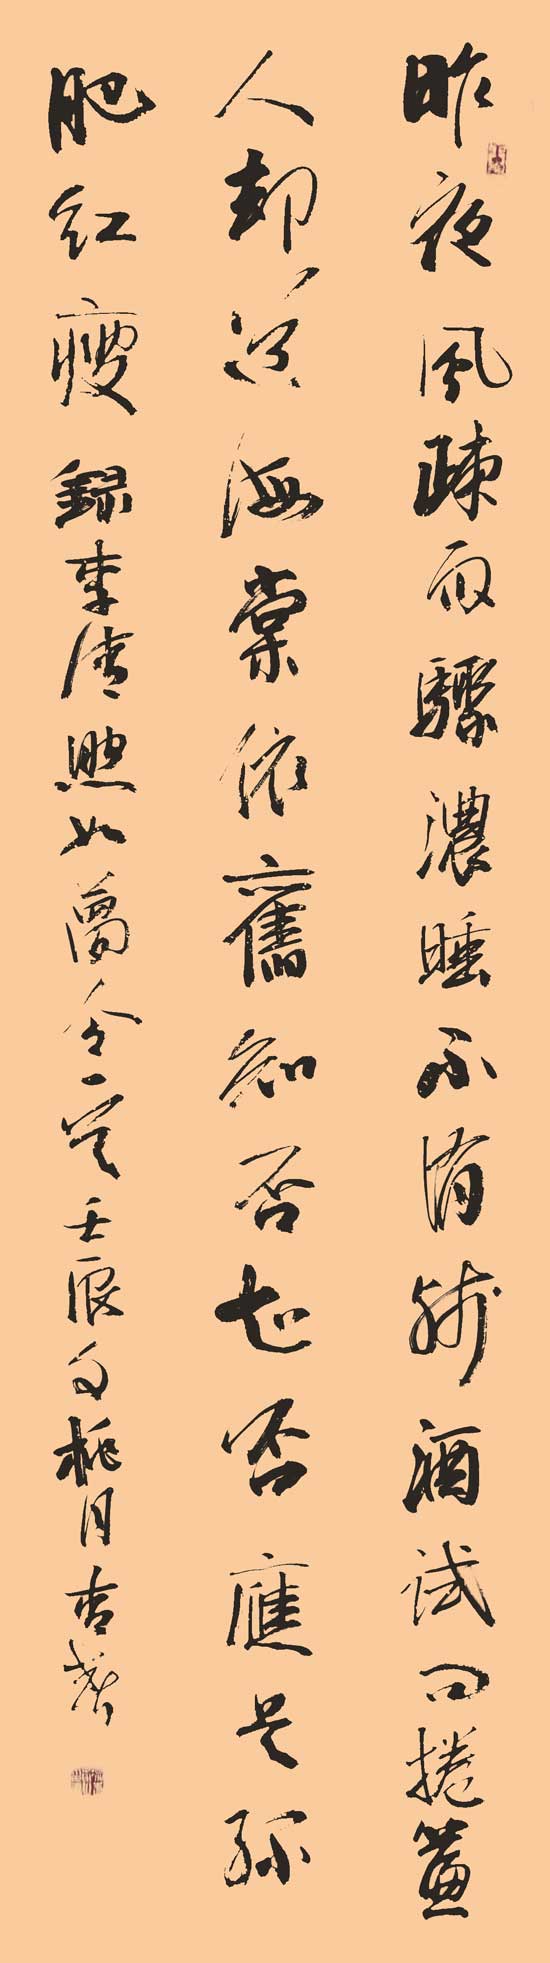 昨夜風疎雨驟濃睡不消殘酒試問捲簾
人却道海棠依舊知否知否應是綠
肥紅瘦錄李清照如夢令一首壬辰桃月